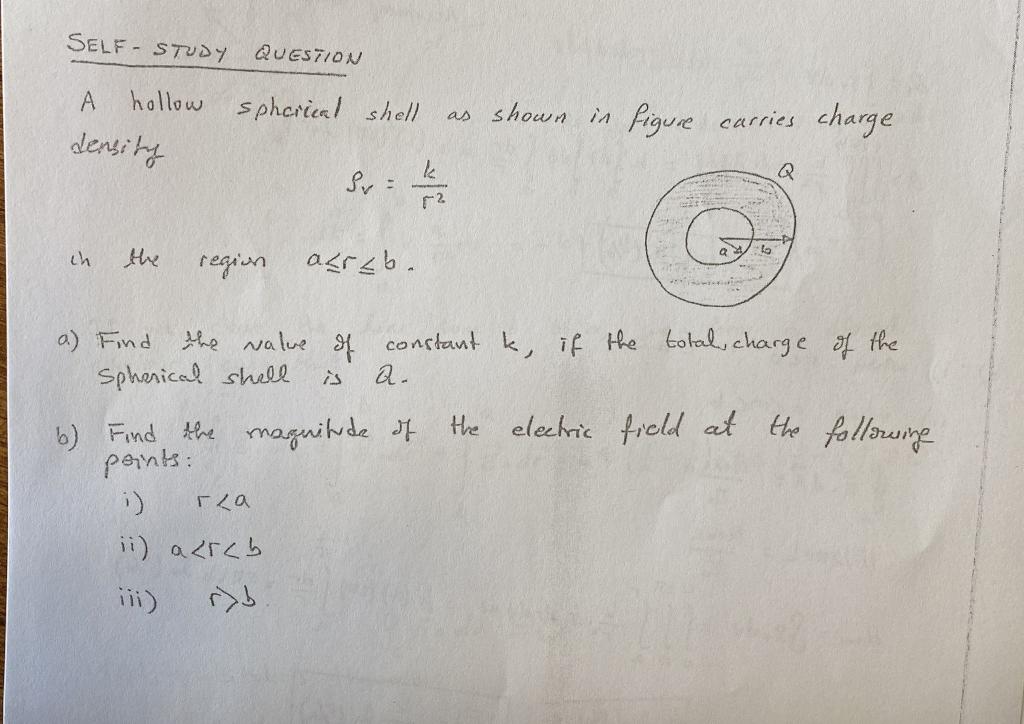 SELF-STUDY QUESTION
A hollow spherical shell as shown in figure carries charge
density
ρv = k/r²
Q
a b
in the region a≤r≤b.
a) Find the value of constant k, if the total charge of the
spherical shell is Q.
b) Find the magnitude of the electric field at the following
points:
i) r<a
ii) a<r<b
iii) r>b